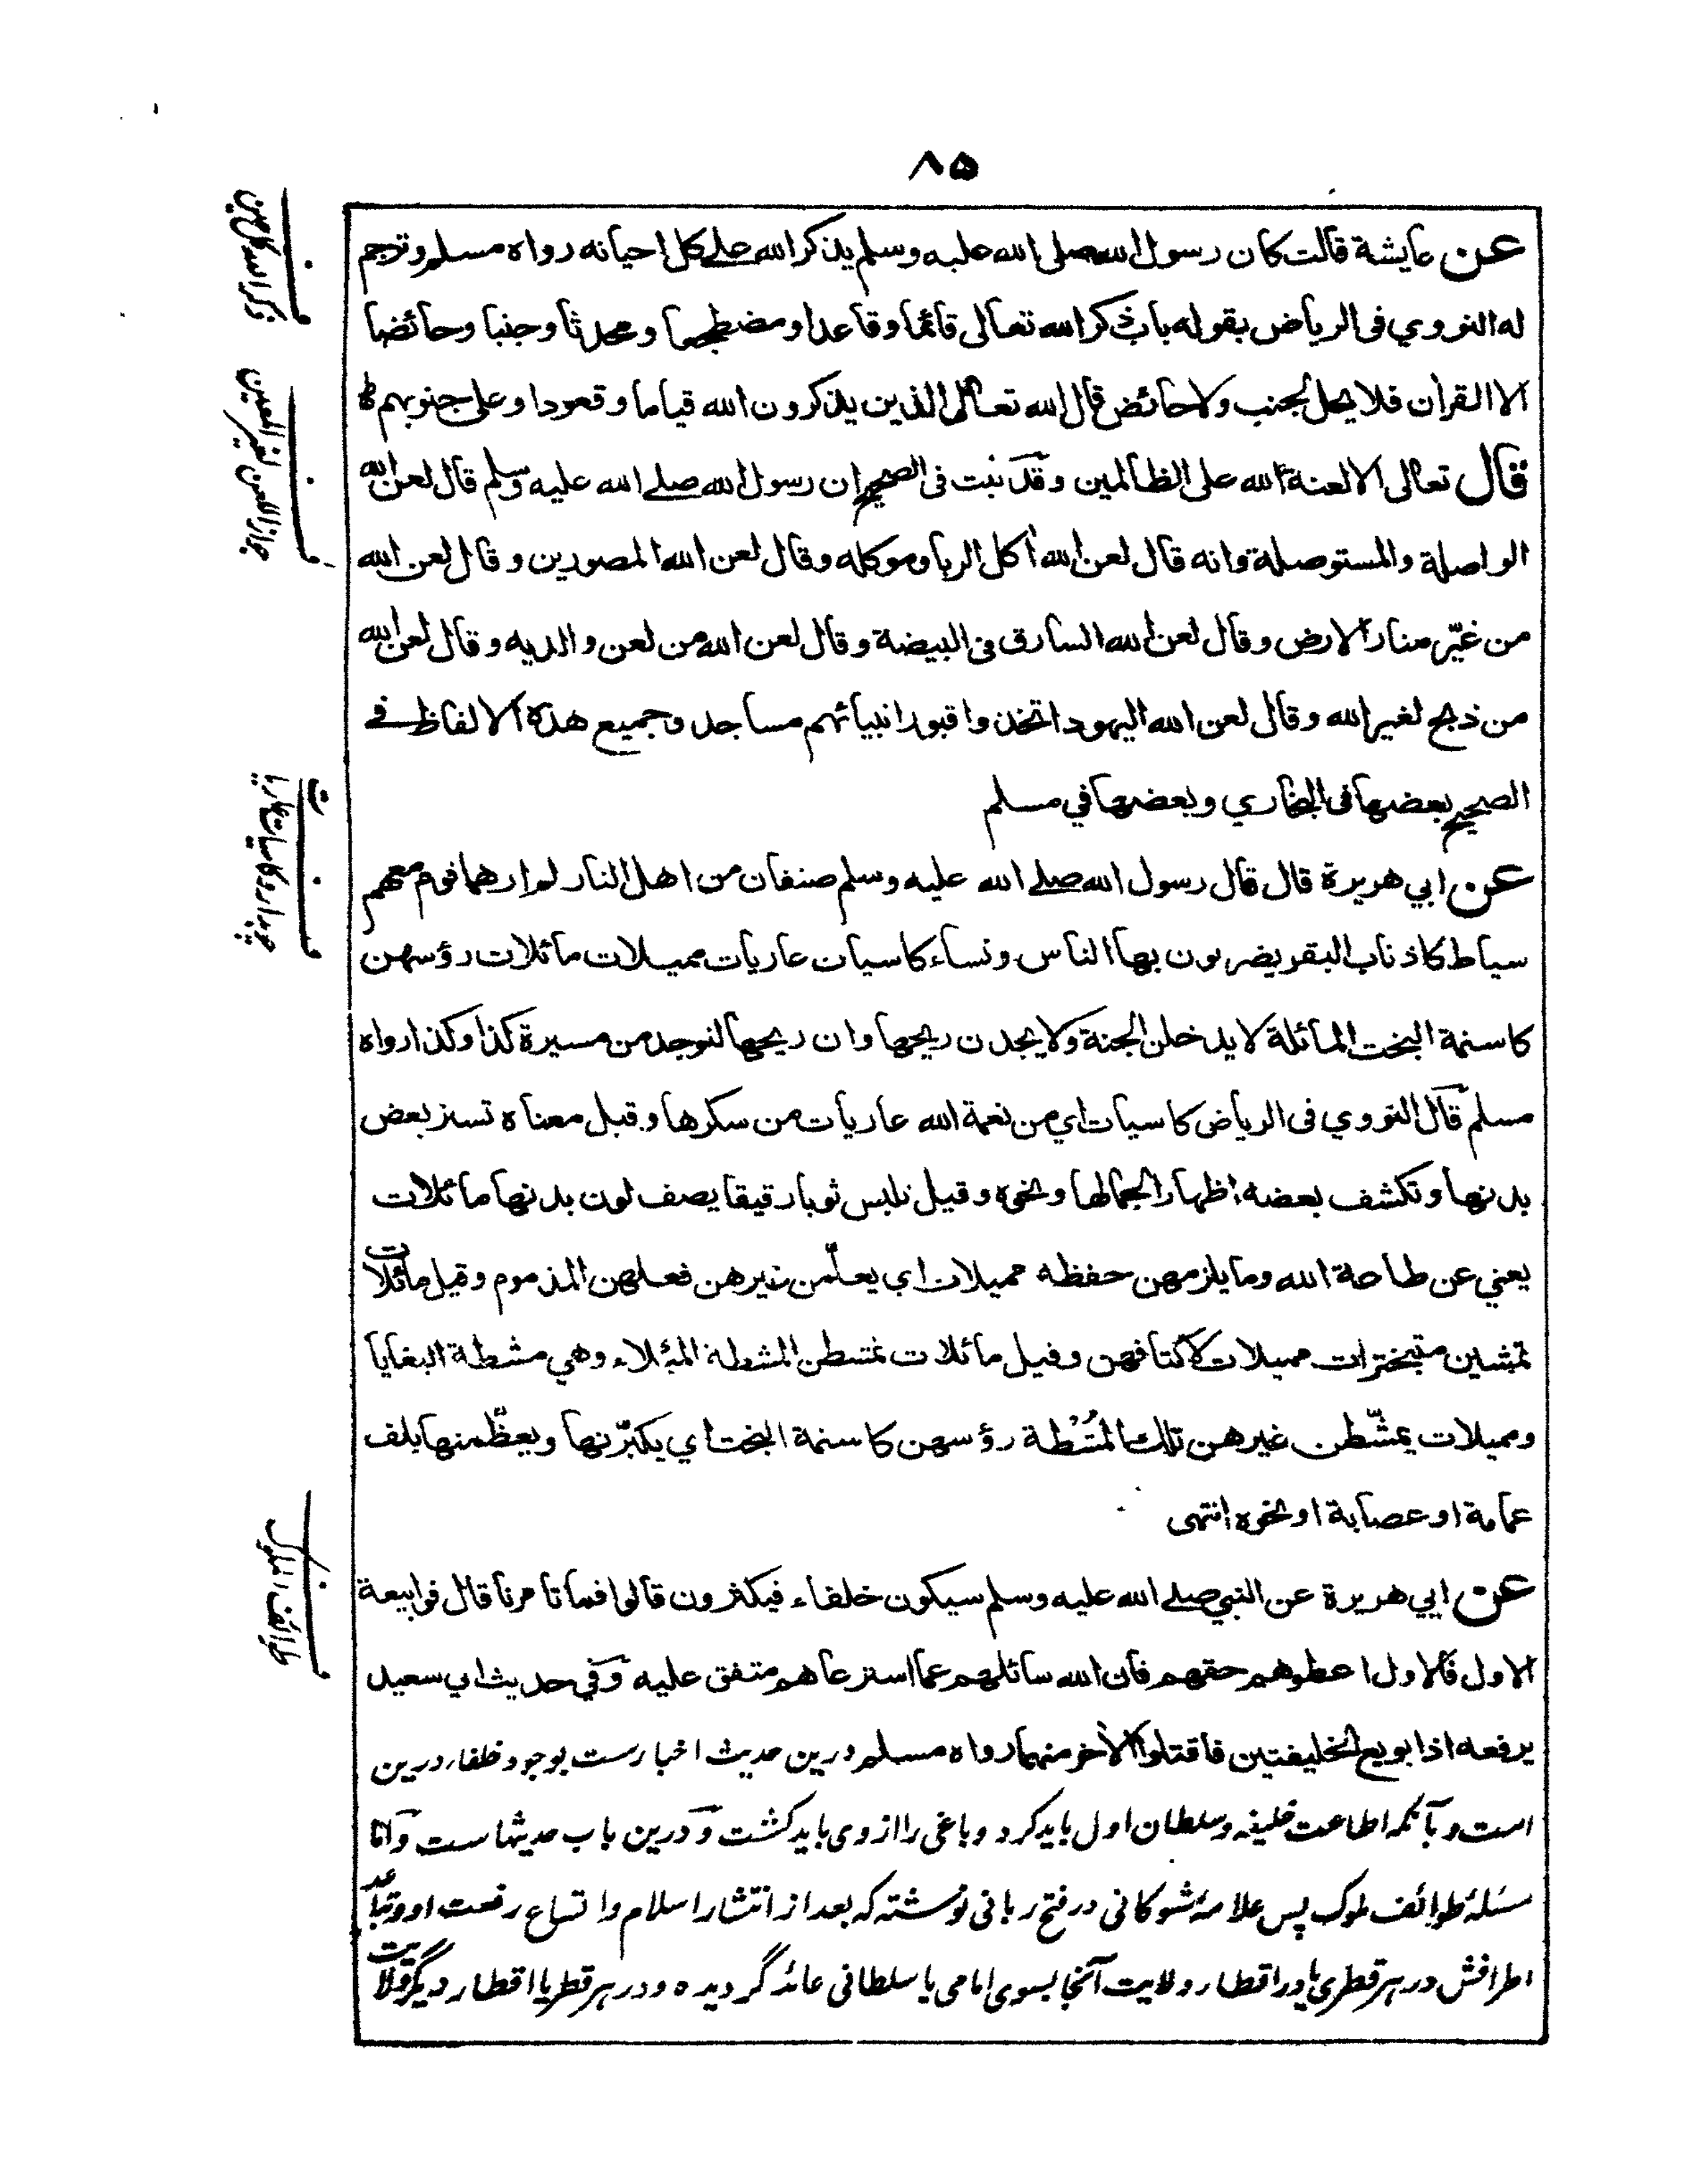 ۸۵
عن عايشة قالت كان رسول الله صلى الله عليه وسلم يذكر الله على كل احيانه رواه مسلم وترجم
له النووي فى الرياض بقوله باب ذكر الله تعالى قائما وقاعدا ومضطجعا ومحدثا وجنبا وحائضا
الا القران فلا يحل لجنب ولا حائض قال الله تعالى الذين يذكرون الله قياما وقعودا وعلى جنوبهم
قال تعالى الا لعنة الله على الظالمين وقد ثبت فى الصحيح ان رسول الله صلے الله عليه وسلم قال لعن الله
الواصلة والمستوصلة وانه قال لعن الله أكل الربا وموكله وقال لعن الله المصورين وقال لعن الله
من غيّر منار الارض وقال لعن الله السارق فى البيضة وقال لعن الله من لعن والديه وقال لعن الله
من ذبح لغير الله وقال لعن الله اليهود اتخذوا قبور انبيائهم مساجد وجميع هذه الالفاظ فے
الصحيح بعضها فى البخاري وبعضها في مسلم
عن ابي هريرة قال قال رسول الله صلے الله عليه وسلم صنفان من اهل النار لم ارهما قوم معهم
سياط كاذناب البقر يضربون بها الناس ونساء كاسيات عاريات مميلات مائلات رؤسهن
كاسنمة البخت المائلة لا يدخلن الجنة ولا يجدن ريحها وان ريحها لتوجد من مسيرة كذا وكذا رواه
مسلم قال النووي فى الرياض كاسيات اي من نعمة الله عاريات من شكرها وقيل معناه تستر بعض
بدنها وتكشف بعضه اظهارا لجمالها ونحوه وقيل تلبس ثوبا رقيقا يصف لون بدنها مائلات
يعني عن طاعة الله وما يلزمهن حفظه مميلات اي يعلّمن غيرهن فعلهن المذموم وقيل مائلات
تمشين متبخترات مميلات لاكتافهن وقيل مائلات تمتشطن المشطة الميلاء وهي مشطة البغايا
ومميلات يمشّطن غيرهن تلك المُشْطة رؤسهن كاسنمة البخت اي يكبّرنها ويعظّمنها بلف
عمامة او عصابة او نحوه انتهى
عن ابي هريرة عن النبي صلے الله عليه وسلم سيكون خلفاء فيكثرون قالوا فما تامرنا قال فوا بيعة
الاول فالاول اعطوهم حقهم فان الله سائلهم عما استرعاهم متفق عليه وفي حديث ابي سعيد
يرفعه اذا بويع لخليفتين فاقتلوا الأخر منهما رواه مسلم درين حديث اخبارست بوجود خلفا درين
است و بآنكه اطاعت خليفه و سلطان اول بايد كرد و باغى را از وى بايد كشت و درين باب حديثهاست و اما
مسئلۀ طوائف ملوك پس علامۀ شوكانى در فتح ربانى نوشته كه بعد از انتشار اسلام و اتساع رقعت او و تباعد
اطرافش در هر قطرى يا در اقطار ولايت آنجا بسوى امامى يا سلطانى عائد گرديده و در هر قطر يا اقطار ديگر ولايت
طوائف الملوك